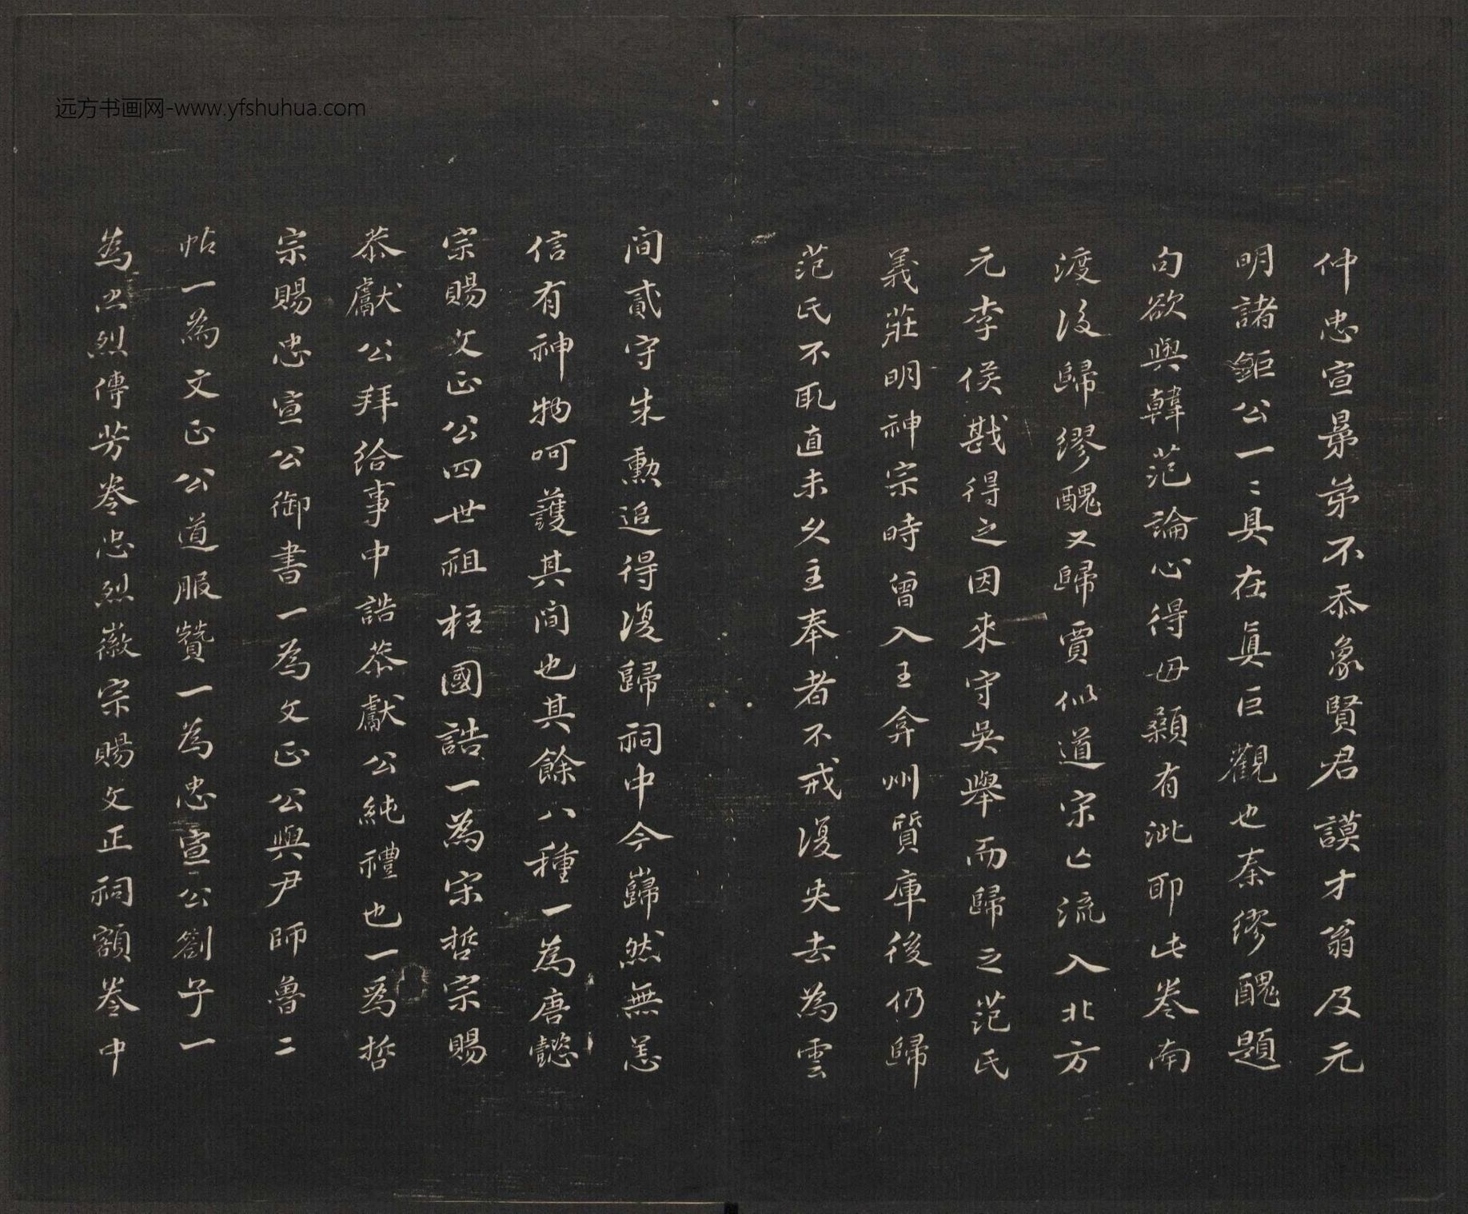 仲忠宣暴弟不忝象賢君謨才翁及元
明諸鉅公一〻具在真巨觀也秦繆醜題
句欲與韓范論心得毋顙有泚耶此卷南
渡後歸繆醜又歸賈似道宋亡流入北方
元李侯戡得之因來守吳舉而歸之范氏
義莊明神宗時曾入王弇州質庫後仍歸
范氏不取直未久主奉者不戒復失去為雲
間貳守朱勳追得復歸祠中今巋然無恙
信有神物呵護其間也其餘八種一為唐懿
宗賜文正公四世祖柱國誥一為宋哲宗賜
恭獻公拜給事中誥恭獻公純禮也一為哲
宗賜忠宣公御書一為文正公與尹師魯二
帖一為文正公道服贊一為忠宣公劄子一
為忠烈傳芳卷忠烈徽宗賜文正祠額卷中
远方书画网-www.yfshuhua.com